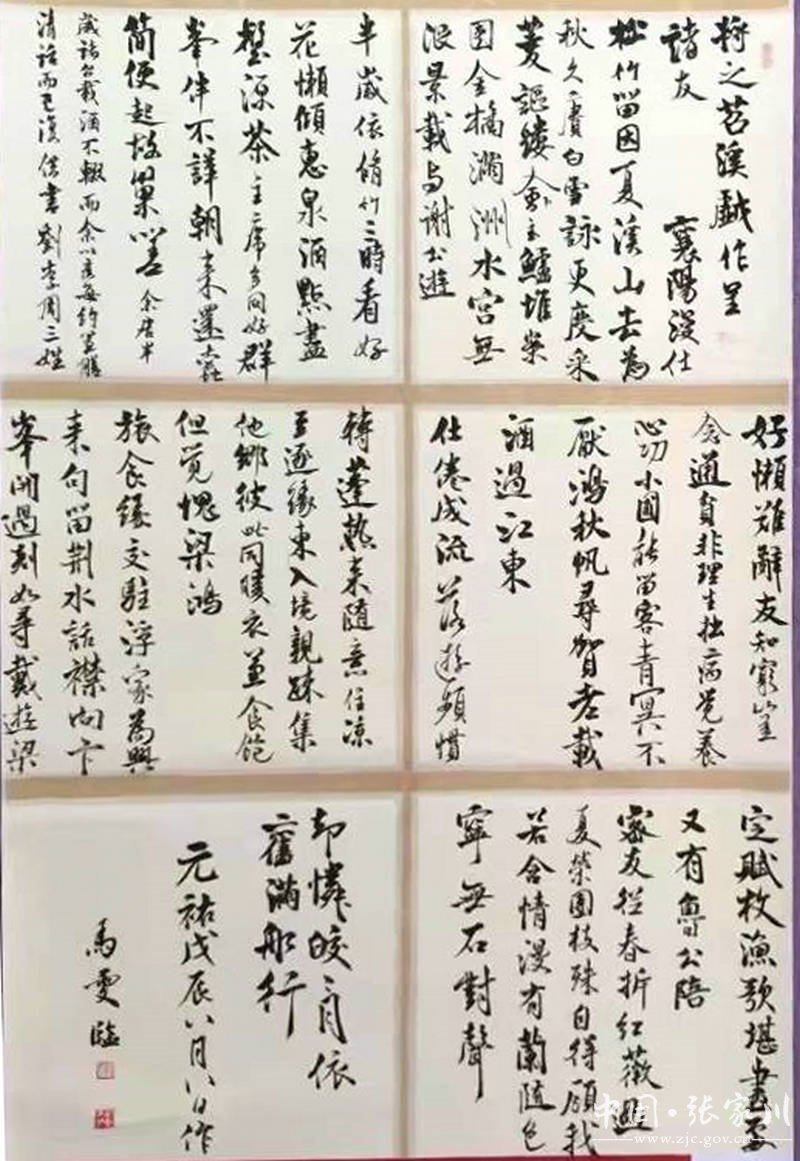 將之苕溪戯作呈
諸友　襄陽漫仕
松竹留因夏溪山去为
秋久賡白雪詠更度采
菱謳縷會玉鱸堆案
團金橘滿洲水宫無
限景载与謝公遊
半歲依脩竹三時看好
花懶傾惠泉酒點盡
壑源茶主席多同好群
峯伴不譁朝来還蠹
简便起故巢嗟　余居半
歲諸公载酒不輟而余以疾每約置膳
清話而已復借書劉李周三姓
好懶難辭友知窮豈
念通貧非理生拙病覺養
心功小圃能留客青冥不
厭鴻秋帆尋賀老載
酒過江東
仕倦成流落遊頻慣
轉蓬熱来随意住凉
至逐緣東入境親疎集
他鄉彼此同暖衣並食飽
但觉愧梁鴻
旅食緣交駐浮家為興
来句留荆水話襟向卞
峯開過剡如尋戴遊梁
定賦枚漁歌堪畫處
又有魯公陪
密友從春拆红薇過
夏榮團枝殊自得顧我
若含情漫有蘭随色
寧無石對聲
却憐皎〻月依
舊滿船行
元祐戊辰八月八日作
馬雯臨
中国·张家川
www.zjc.gov.cn